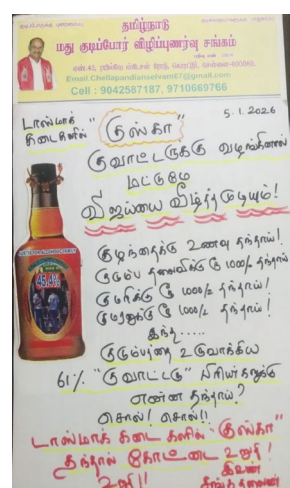 தமிழ்நாடு
மது குடிப்போர் விழிப்புணர்வு சங்கம்
Email.Chellapandianselvam67@gmail.com
Cell : 9042587187, 9710669766
5.1.2026
டாஸ்மாக் கடைகளில் "குஸ்கா"
குவாட்டருக்கு வழங்கினால்
மட்டுமே
விஜய்யை வீழ்த்தமுடியும்!
குழந்தைக்கு உணவு தந்தாய்!
குடும்ப தலைவிக்கு ரூ 1000/- தந்தாய்
குமரிக்கு ரூ 1000/- தந்தாய்!
குமரனுக்கு ரூ 1000/- தந்தாய்!
இந்த.....
குடும்பத்தை உருவாக்கிய
61% "குவாட்டரு" பிரியர்களுக்கு
என்ன தந்தாய்?
சொல்! சொல்!!
45.4%
டாஸ்மாக் கடைகளில் "குஸ்கா"
தந்தால் கோட்டை உறுதி!
உறுதி!! இவண்